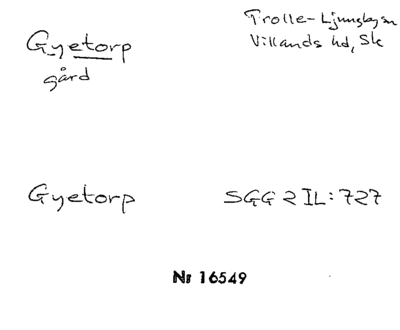 Gyetorp
gård
Trolle-Ljungby sn
Villands hd, Sk
Gyetorp
SGG 2 IL: 727
Nr 16549